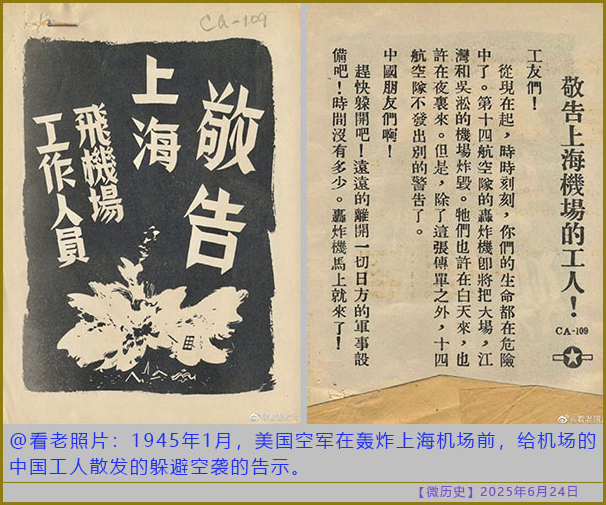 CA-109
敬告
上海
飛機場
工作人員
@看老照片
敬告上海機場的工人！
CA-109
工友們！
從現在起，時時刻刻，你們的生命都在危險
中了。第十四航空隊的轟炸機卽將把大場，江
灣和吳淞的機場炸毀。牠們也許在白天來，也
許在夜裏來。但是，除了這張傳單之外，十四
航空隊不發出別的警告了。
中國朋友們啊！
趕快躲開吧！遠遠的離開一切日方的軍事設
備吧！時間沒有多少。轟炸機馬上就來了！
@看老照片
@看老照片：1945年1月，美国空军在轰炸上海机场前，给机场的
中国工人散发的躲避空袭的告示。
【微历史】2025年6月24日